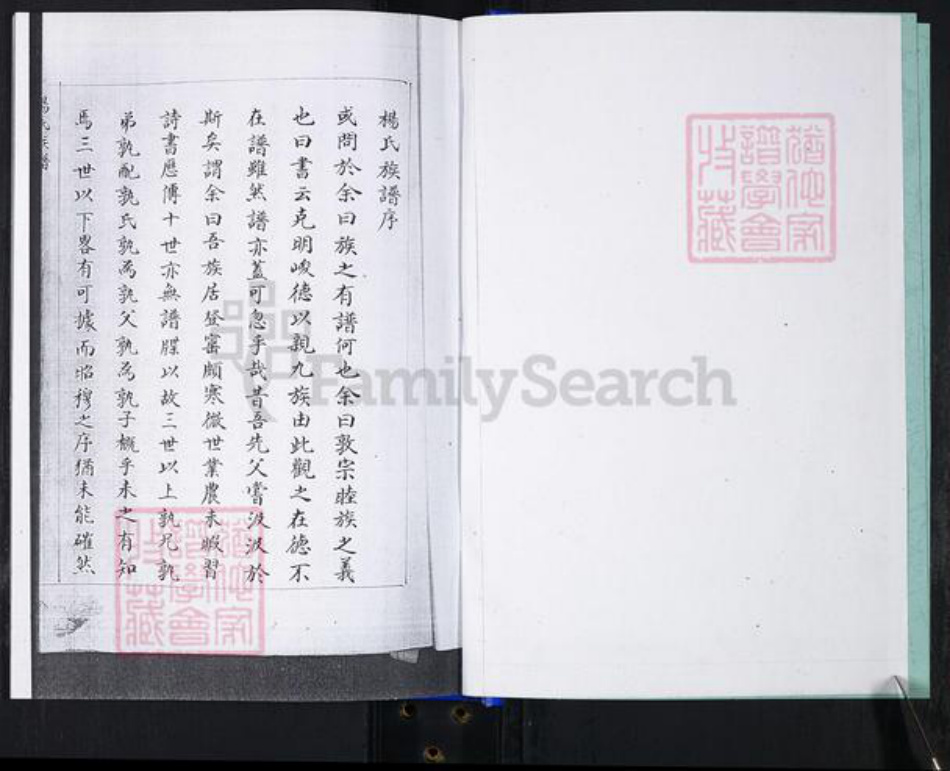 楊氏族譜序
或問於余曰族之有譜何也余曰敦宗睦族之義
也曰書云克明峻德以親九族由此觀之在德不
在譜雖然譜亦蓋可忽乎哉昔吾先父嘗汲汲於
斯矣謂余曰吾族居登窰頗寒微世業農未暇習
詩書歷傳十世亦無譜牒以故三世以上孰兄孰
弟孰配孰氏孰為孰父孰為孰子概乎未之有知
焉三世以下畧有可據而昭穆之序猶未能確然
楊氏族譜
家譜學會收藏
家譜學會收藏
FamilySearch